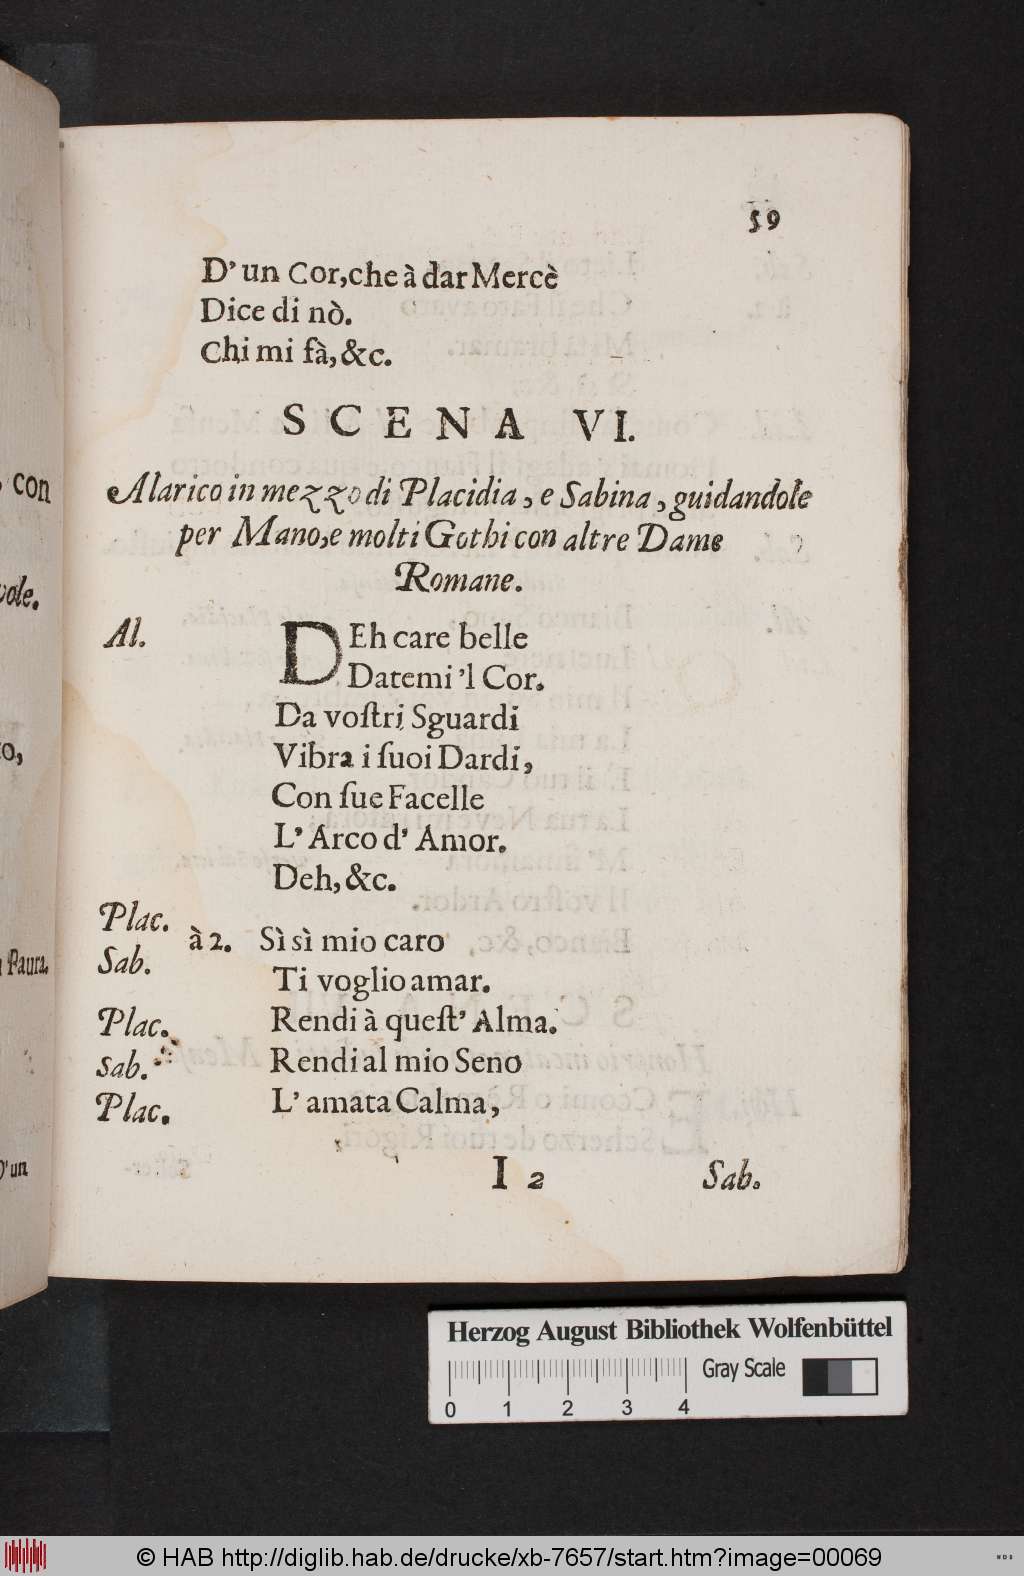 59
D'un Cor, che à dar Mercè
Dice di nò.
Chi mi fà, &c.
SCENA VI.
Alarico in mezzo di Placidia, e Sabina, guidandole
per Mano, e molti Gothi con altre Dame
Romane.
Al. DEh care belle
Datemi 'l Cor.
Da voſtri Sguardi
Vibra i ſuoi Dardi,
Con ſue Facelle
L'Arco d'Amor.
Deh, &c.
Plac.
Sab. à 2. Sì sì mio caro
Ti voglio amar.
Plac. Rendi à queſt'Alma.
Sab. Rendi al mio Seno
Plac. L'amata Calma,
I 2 Sab.
con
vole.
to,
Paura.
D'un
Herzog August Bibliothek Wolfenbüttel
Gray Scale
0 1 2 3 4
© HAB http://diglib.hab.de/drucke/xb-7657/start.htm?image=00069